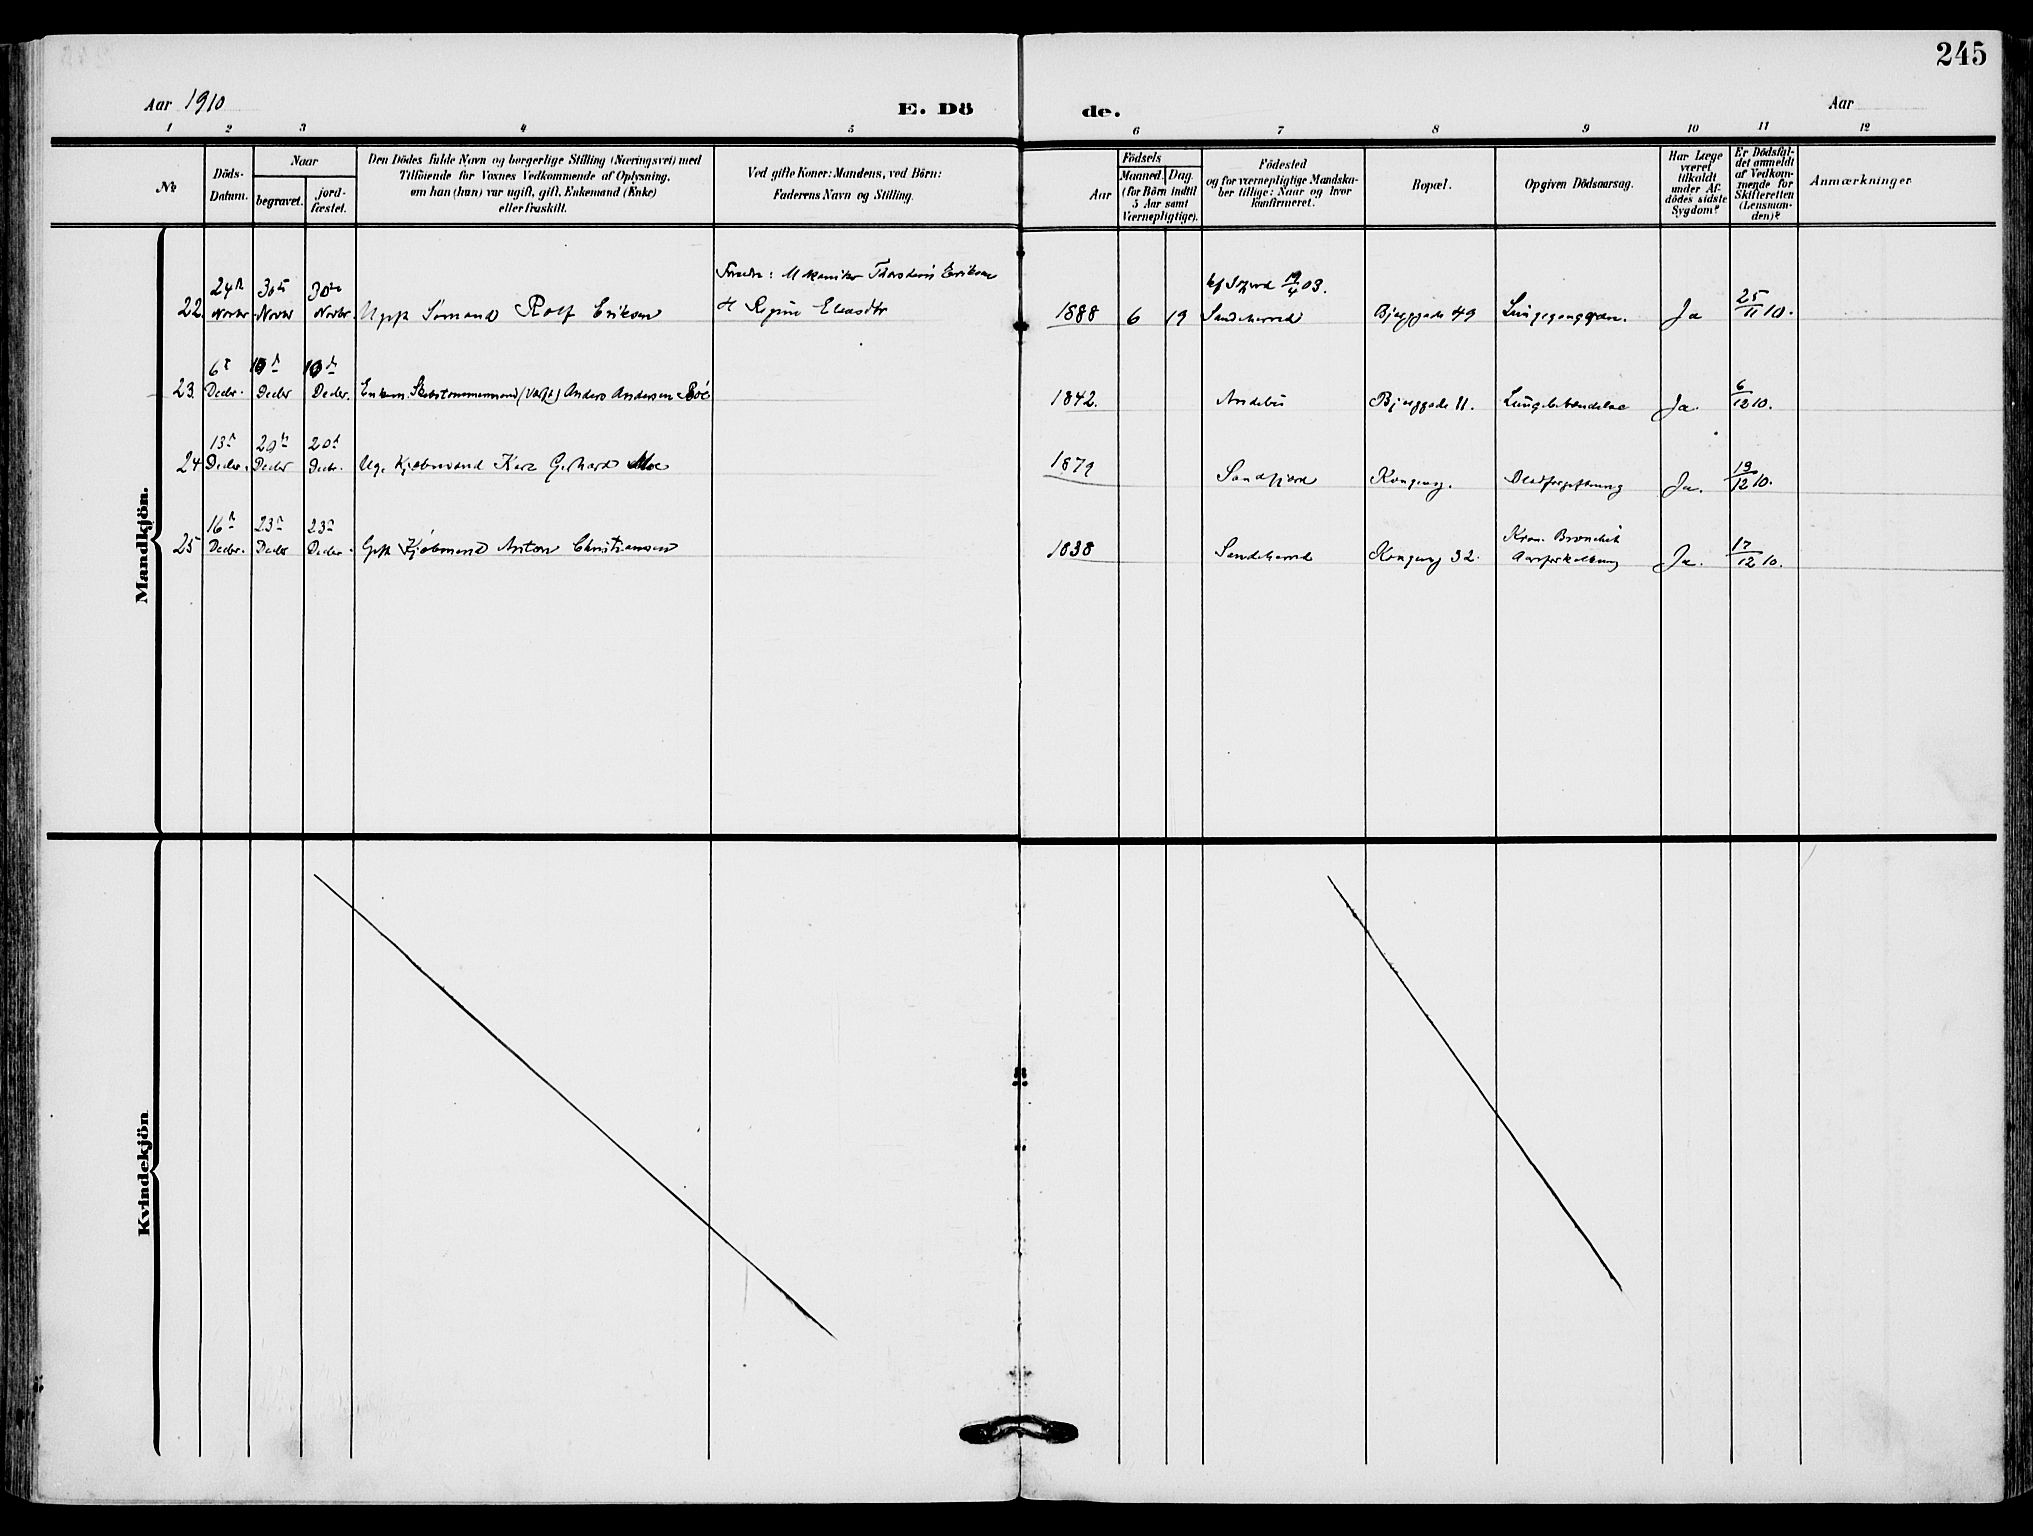 245
Aar 1910
E. Dö
de.
Aar
1 2 3 4 5 6 7 8 9 10 11 12
No
Döds-
Datum.
Naar
begravet.
jord-
fæstet.
Den Dödes fulde Navn og borgerlige Stilling (Næringsvei) med
Tilföiende for Voxnes Vedkommende af Oplysning,
om han (hun) var ugift, gift, Enkemand (Enke)
eller fraskilt.
Ved gifte Koner: Mandens, ved Börn:
Faderens Navn og Stilling.
Födsels
Aar
Maaned.
Dag.
(for Börn indtil
5 Aar samt
Værnepligtige).
Födested
og for værnepligtige Mandska-
ber tillige: Naar og hvor
konfirmeret.
Bopæl.
Opgiven Dödsaarsag.
Har Læge
været
tilkaldt
under Af-
dödes sidste
Sygdom?
Er Dödsfal-
det anmeldt
af Vedkom-
mende for
Skifteretten
(Lensman-
den)?
Anmærkninger
Mandkjön.
22. 24 Novbr 30 Novbr 30 Novbr. Sömand Rolf Eriksen
Mekaniker Eriksen
1888 6 19
19/4 03.
Sandeherred Bjerggade 49 Ja 25/11 10.
23. 6 Decbr. Decbr Decbr. Enkem. Anders Andersen
1842. Andebu Bjerggade 11. Lungebetændelse Ja. 6/12 10.
24 13 Decbr. 20 Decbr 20 Decbr. Ug. Kjøbmand Gerhard Moe
1879 Sandefjord Kongeveg. Ja. 19/12 10.
25 16 Decbr. 23 Decbr 23 Decbr. Gift Kjøbmand Anton Christiansen
1838 Sandeherred Kongeveg 32. Kron. Bronchit
Aareforkalkning Ja. 17/12 10.
Kvindekjön